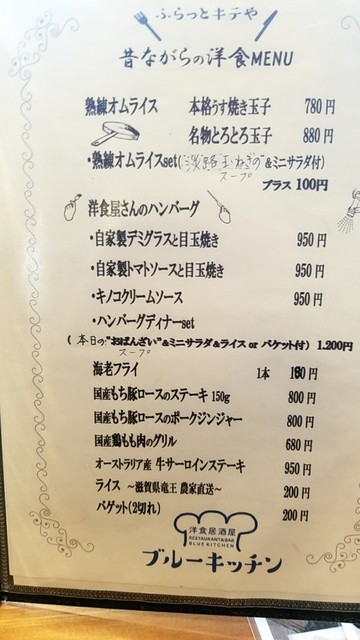 ふらっとキテや
昔ながらの洋食MENU
熟練オムライス 本格うす焼き玉子 780円
名物とろとろ玉子 880円
・熟練オムライスset(淡路玉ねぎの&ミニサラダ付)
スープ
プラス100円
洋食屋さんのハンバーグ
・自家製デミグラスと目玉焼き 950円
・自家製トマトソースと目玉焼き 950円
・キノコクリームソース 950円
・ハンバーグディナーset
(本日の"おばんざい"&ミニサラダ&ライス or バケット付) 1.200円
スープ
海老フライ 1本 円
国産もち豚ロースのステーキ 150g 800円
国産もち豚ロースのポークジンジャー 800円
国産鶏もも肉のグリル 680円
オーストラリア産 牛サーロインステーキ 950円
ライス ～滋賀県竜王 農家直送～ 200円
バゲット(2切れ) 200円
洋食居酒屋
RESTAURANT&BAR
BLUE KITCHEN
ブルーキッチン